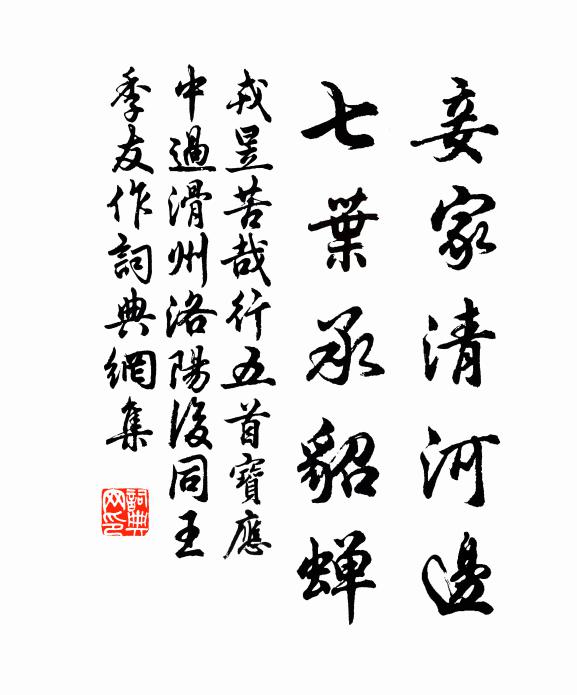 妾家清河邊
七葉承貂蟬
戎昱苦哉行五首寶應
中過滑州洛陽後同王
季友作詞典網集
詞典
网印